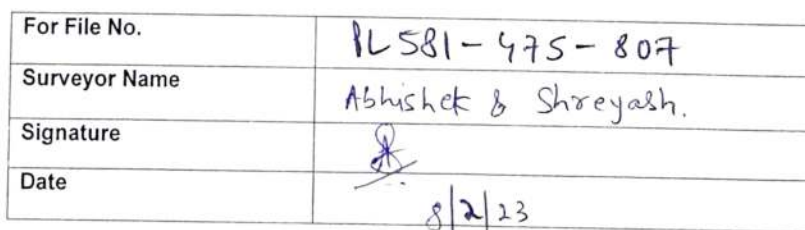 For File No. PL581-475-807
Surveyor Name Abhishek & Shreyash.
Signature
Date 8/2/23